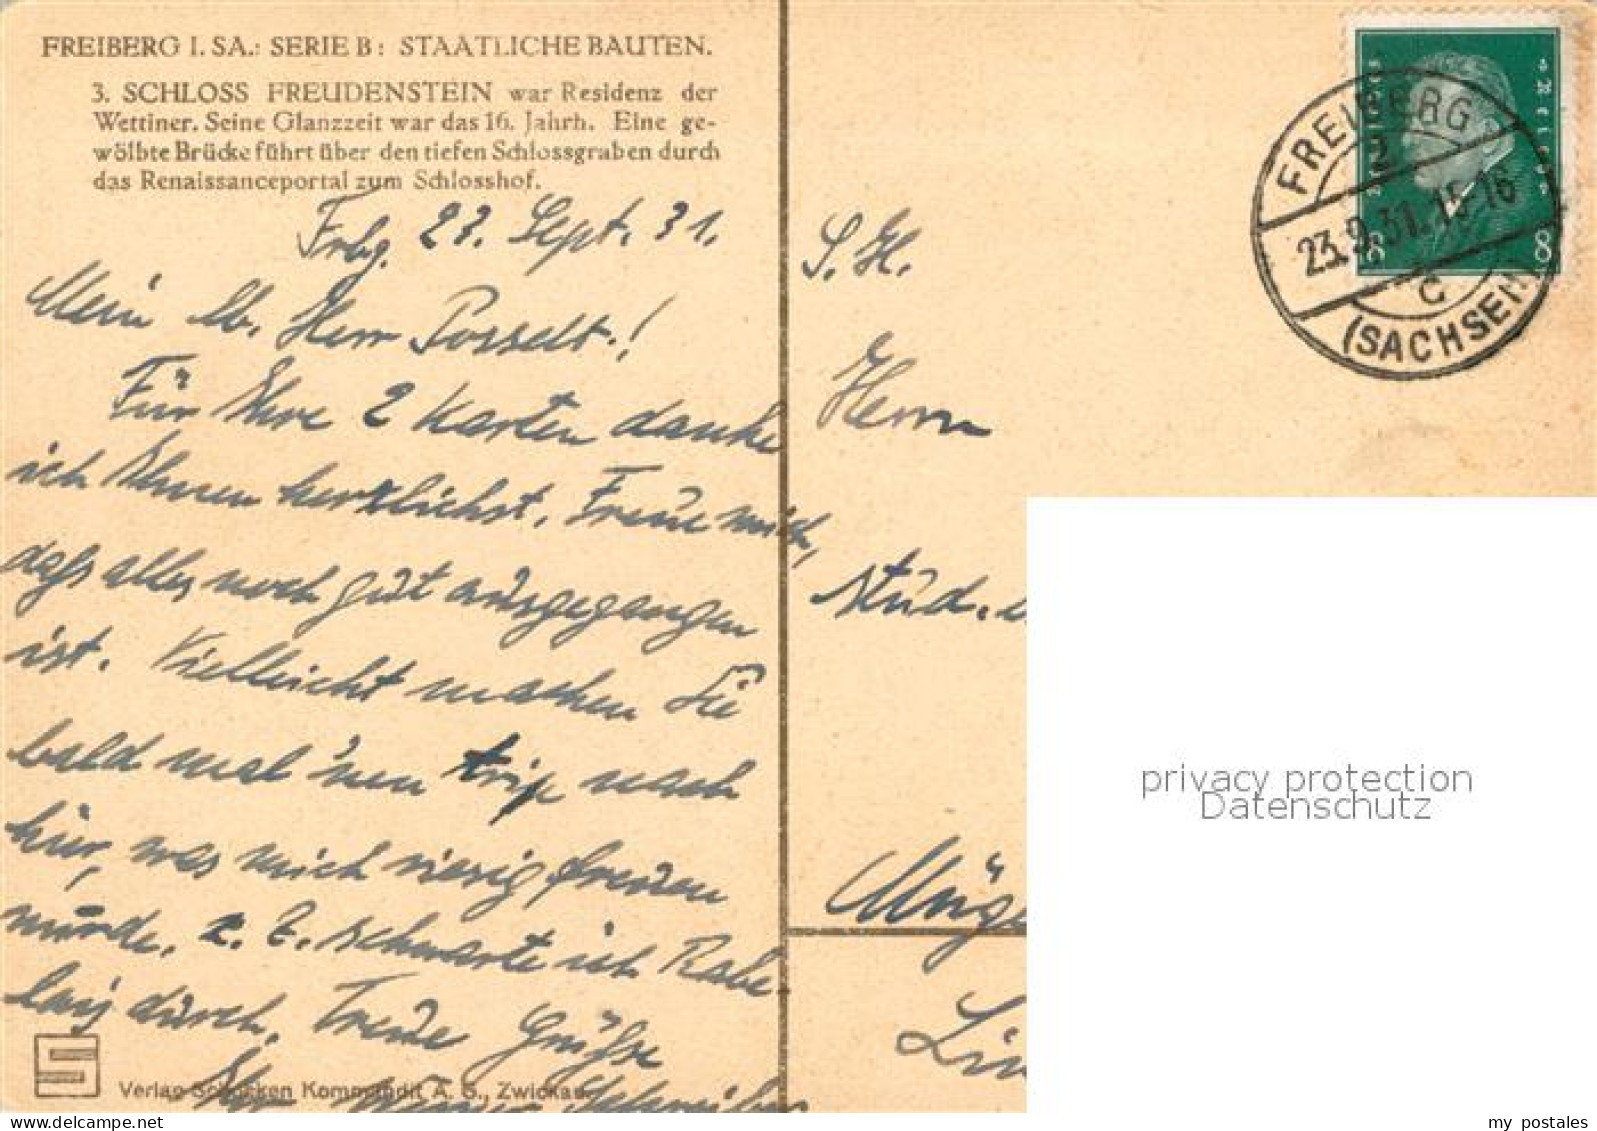 FREIBERG I. SA.: SERIE B: STAATLICHE BAUTEN.
3. SCHLOSS FREUDENSTEIN war Residenz der
Wettiner. Seine Glanzzeit war das 16. Jahrh. Eine ge-
wölbte Brücke führt über den tiefen Schlossgraben durch
das Renaissanceportal zum Schlosshof.
Frbg. 23. Sept. 31.
Mein lb. Herr Posselt!
Für Ihre 2 Karten danke
ich Ihnen herzlichst. Freue mich,
dass alles noch gut ausgegangen
ist. Vielleicht machen Sie
bald mal 'nen trip nach
hier, was mich riesig freuen
würde. z. Z. schwarte ich Rabe-
lais durch. Treue Grüsse
Ihr Werner Schreiber
Verlag Schocken Kommandit A. G., Zwickau
S. H.
Herrn
stud.
Müge
Lin
8 8
FREIBERG 2
23.9.31.15-16
C
(SACHSEN)
privacy protection
Datenschutz
my_postales